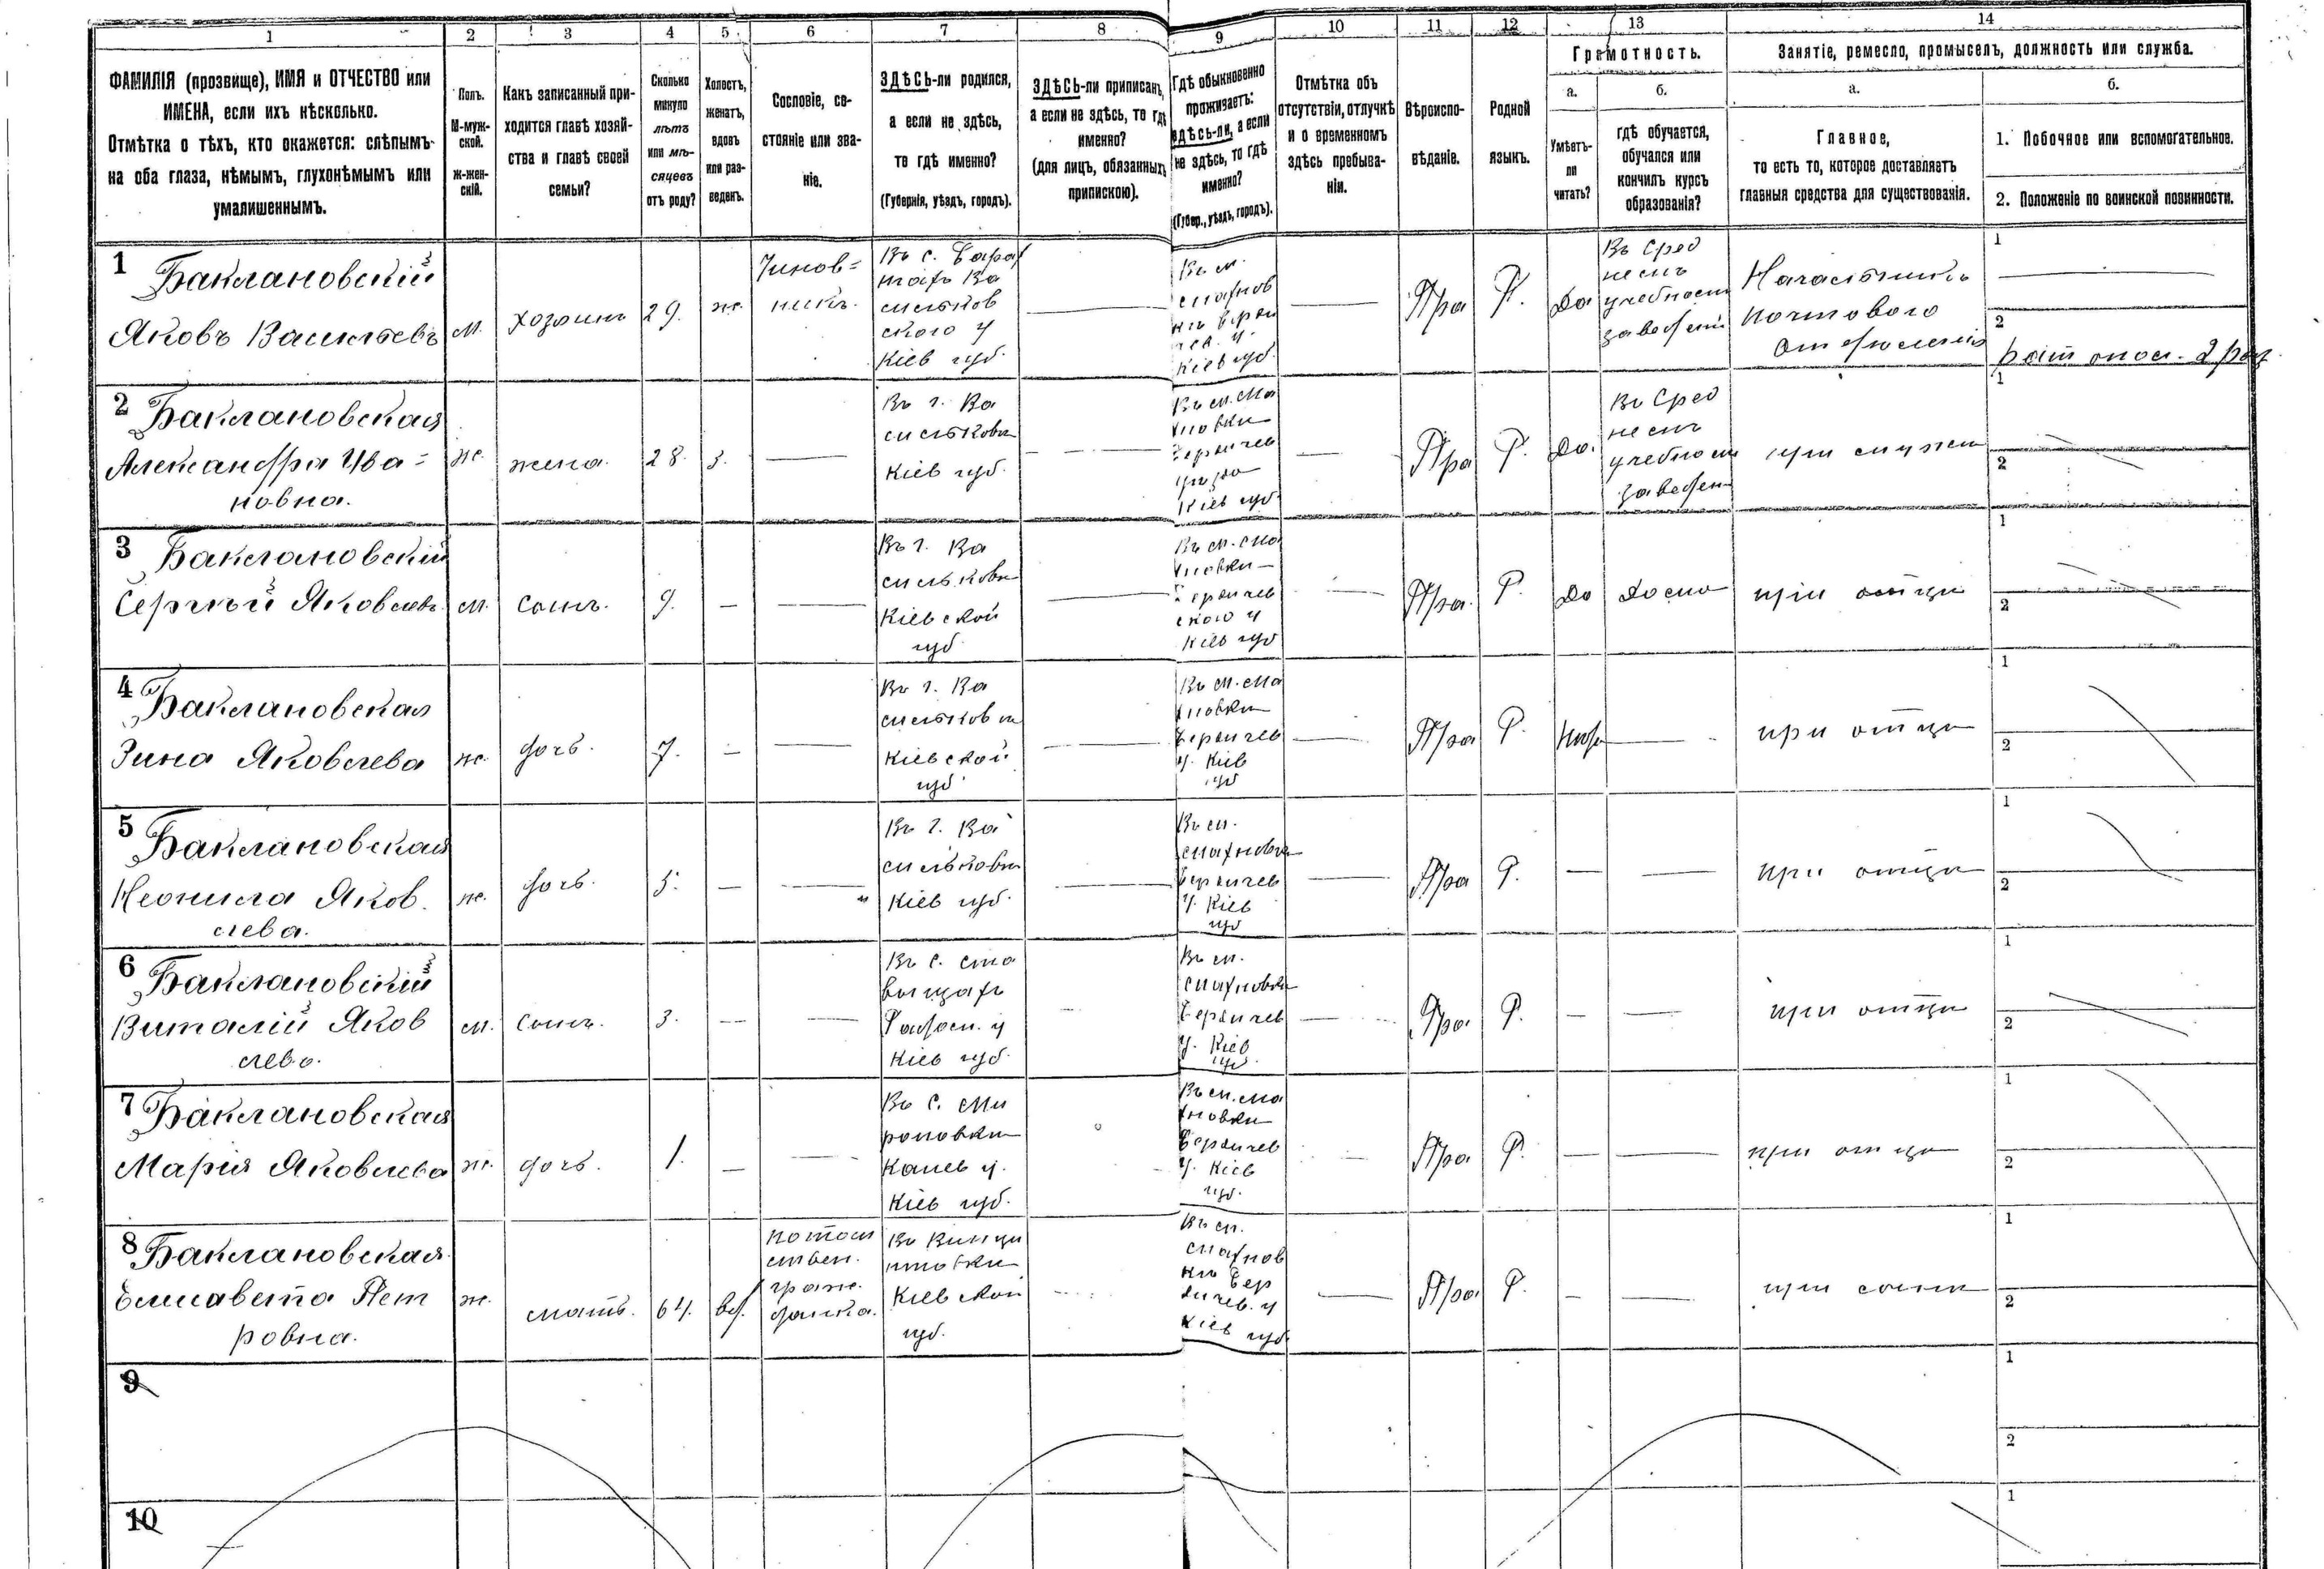 1 2 3 4 5 6 7 8 9 10 11 12 13 14
ФАМИЛІЯ (прозвище), ИМЯ и ОТЧЕСТВО или
ИМЕНА, если ихъ нѣсколько.
Отмѣтка о тѣхъ, кто окажется: слѣпымъ
на оба глаза, нѣмымъ, глухонѣмымъ или
умалишеннымъ.
Полъ.
М-муж-
ской.
Ж-жен-
скій.
Какъ записанный при-
ходится главѣ хозяй-
ства и главѣ своей
семьи?
Сколько
минуло
лѣтъ
или мѣ-
сяцевъ
отъ роду?
Холостъ,
женатъ,
вдовъ
или раз-
веденъ.
Сословіе, со-
стояніе или зва-
ніе.
ЗДѢСЬ-ли родился,
а если не здѣсь,
то гдѣ именно?
(Губернія, уѣздъ, городъ).
ЗДѢСЬ-ли приписанъ,
а если не здѣсь, то гдѣ
именно?
(для лицъ, обязанныхъ
припискою).
Гдѣ обыкновенно
проживаетъ:
здѣсь-ли, а если
не здѣсь, то гдѣ
именно?
(Губер., уѣздъ, городъ).
Отмѣтка объ
отсутствіи, отлучкѣ
и о временномъ
здѣсь пребыва-
ніи.
Вѣроиспо-
вѣданіе.
Родной
языкъ.
Грамотность.
а.
Умѣетъ-
ли
читать?
б.
гдѣ обучается,
обучался или
кончилъ курсъ
образованія?
Занятіе, ремесло, промыселъ, должность или служба.
а.
Главное,
то есть то, которое доставляетъ
главныя средства для существованія.
б.
1. Побочное или вспомогательное.
2. Положеніе по воинской повинности.
1
Баклановскій
Яковъ Васильевъ
м.
хозяинъ
29.
ж.
Чинов=
никъ.
Въ с.
Ва
сильков
скаго у
Кіев губ.
Въ м.
Махнов
кѣ Берди
чев. у.
Кіев губ.
Пра
Р.
Да
Въ Сред
немъ
учебномъ
заведеніи
Начальникъ
почтового
отдѣленія
1
2
рат опол. 2 раз
2
Баклановская
Александра Ива=
новна.
ж.
жена.
28.
з.
Въ г. Ва
сильковѣ
Кіев губ.
Въ м. Ма
хновки
Бердичев
уѣзда
Кіев губ.
Пра
Р.
Да.
Въ Сред
немъ
учебном
заведен
при мужѣ
1
2
3
Баклановскій
Сергѣй Яковлевъ
м.
сынъ.
9.
Въ г. Ва
сильковѣ
Кіевской
губ
Въ м. Ма
хновки
Бердичев
ского у
Кіев губ
Пра.
Р.
Да
Дома
при отцѣ
1
2
4
Баклановская
Зина Яковлева
ж.
дочь.
7.
Въ г. Ва
сильковѣ
Кіевской
губ
Въ м. Ма
хновки
Бердичев
у. Кіев
губ
Пра
Р.
при отцѣ
1
2
5
Баклановская
Неонила Яков.
лева.
ж.
дочь.
5.
Въ г. Ва
сильковѣ
Кіев губ.
Въ м.
Махновки
Бердичев
у. Кіев
губ
Пра
Р.
при отцѣ
1
2
6
Баклановскій
Виталій Яков
лево.
м.
сынъ.
3.
Въ с. Ста
вищахъ
у
Кіев губ.
Въ м.
Махновки
Бердичев
у. Кіев
губ.
Пра.
Р.
при отцѣ
1
2
7
Баклановская
Марія Яковлева
ж.
дочь.
1.
Въ с. Ми
роновки
Канев у.
Кіев губ.
Въ м. Ма
хновки
Бердичев
у. Кіев
губ.
Пра.
Р.
при отцѣ
1
2
8
Баклановская
Елисавета Пет
ровна.
ж.
мать.
64.
вд.
потом
ствен.
граж.
данка.
Кіевской
губ.
Въ м.
Махнов
кѣ Бер
дичев. у
Кіев губ.
Пра
Р.
при сынѣ
1
2
9
1
2
10
1